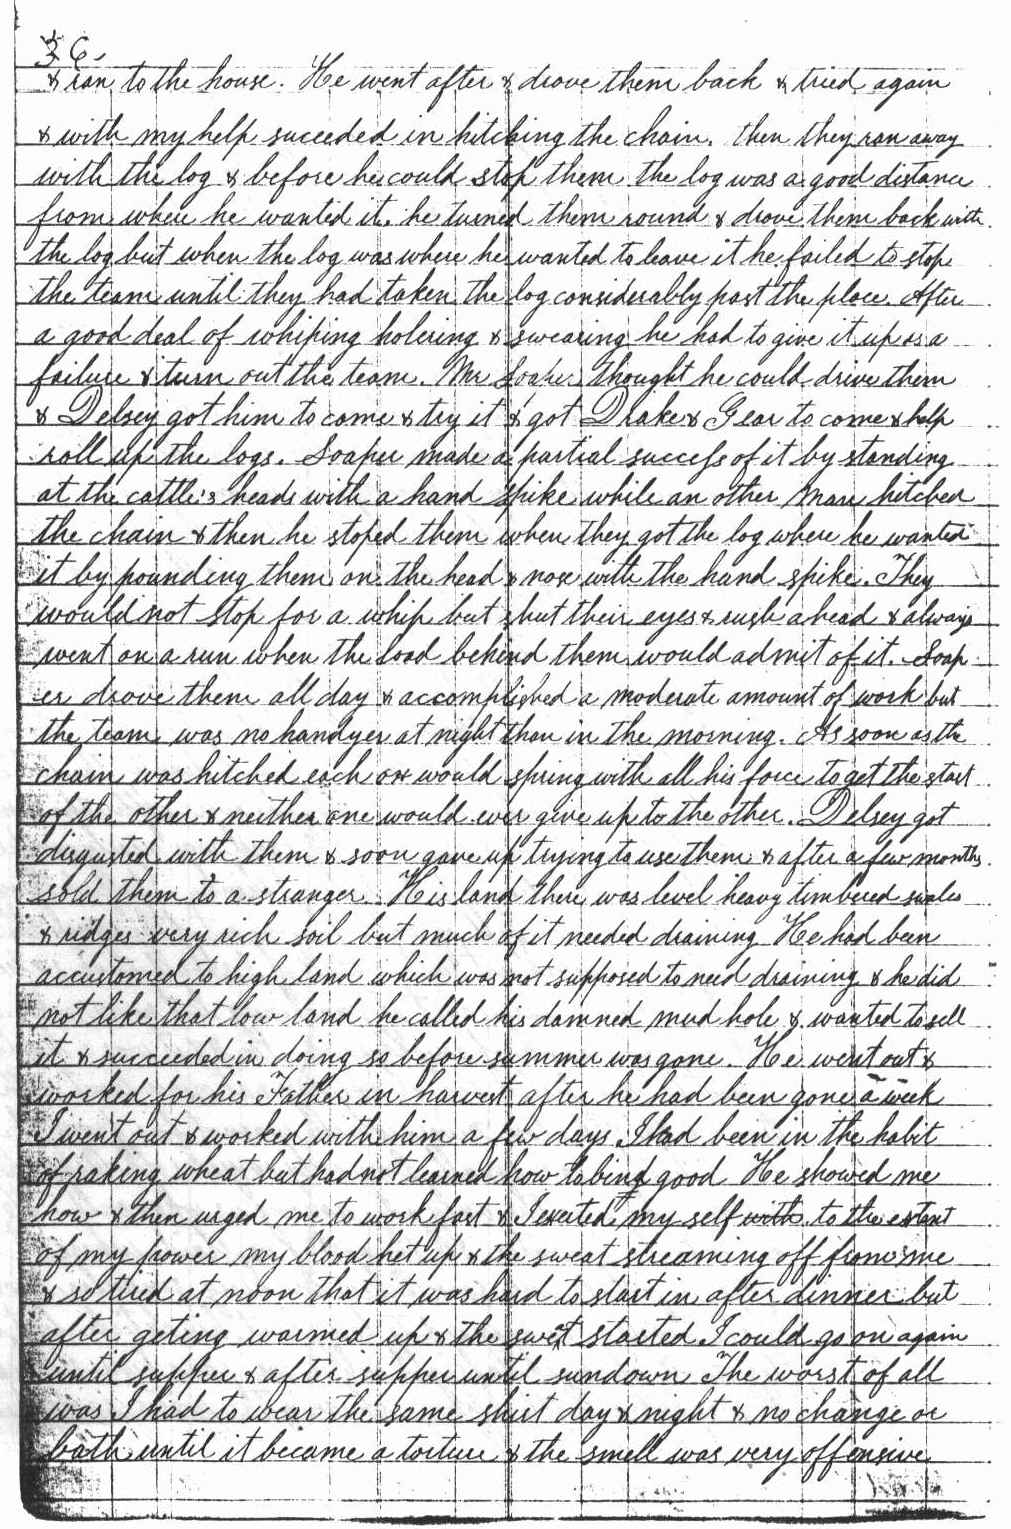 36
& ran to the house. He went after & drove them back & tried again
& with my help succeded in hitching the chain. then they ran away
with the log & before he could stop them the log was a good distance
from where he wanted it. he turned them round & drove them back with
the log but when the log was where he wanted to leave it he failed to stop
the team until they had taken the log considerably past the place. After
a good deal of whiping holering & swearing he had to give it up as a
failure & turn out the team. Mr Soaper thought he could drive them
& Delsey got him to come & try it & got Drake & Gear to come & help
roll up the logs. Soaper made a partial success of it by standing
at the cattle's heads with a hand spike while an other man hitched
the chain & then he stoped them when they got the log where he wanted
it by pounding them on the head & nose with the hand spike. They
would not stop for a whip but shut their eyes & rush ahead & always
went on a run when the load behind them would admit of it. Soap
er drove them all day & accomplished a moderate amount of work but
the team was no handyer at night than in the morning. As soon as the
chain was hitched each ox would spring with all his force to get the start
of the other & neither one would ever give up to the other. Delsey got
disgusted with them & soon gave up trying to use them & after a few months
sold them to a stranger. His land there was level heavy timbered swales
& ridges very rich soil but much of it needed draining He had been
accustomed to high land which was not supposed to need draining & he did
not like that low land he called his damned mud hole & wanted to sell
it & succeeded in doing so before summer was gone. He went out &
worked for his Father in harvest after he had been gone a week
I went out & worked with him a few days. I had been in the habit
of raking wheat but had not learned how to bind good He showed me
how & then urged me to work fast & I exerted my self with to the extent
of my power my blood het up & the sweat streaming off from me
& so tired at noon that it was hard to start in after dinner but
after geting warmed up & the swet started I could go on again
until supper & after supper until sundown The worst of all
was I had to wear the same shirt day & night & no change or
bath until it became a torture & the smell was very offensive